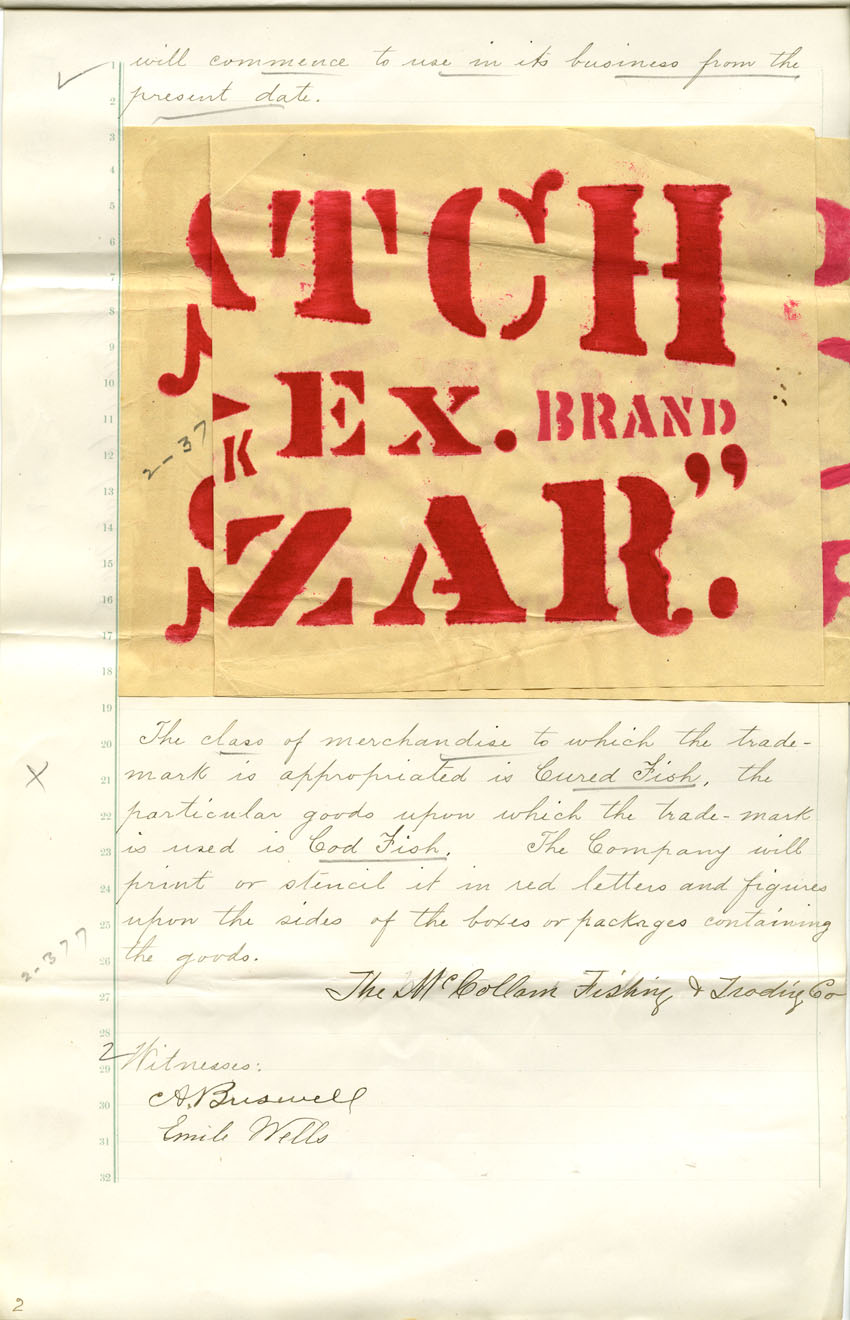 will commence to use in its business from the
present date.
TCH
Ex. BRAND
K
ZAR."
2-37
The class of merchandise to which the trade-
mark is appropriated is Cured Fish, the
particular goods upon which the trade-mark
is used is Cod Fish. The Company will
print or stencil it in red letters and figures
upon the sides of the boxes or packages containing
the goods.
2-377
The McCollam Fishing & Trading Co
2 Witnesses:
Emile Wells
1
2
3
4
5
6
7
8
9
10
11
12
13
14
15
16
17
18
19
20
21
22
23
24
25
26
27
28
29
30
31
32
2